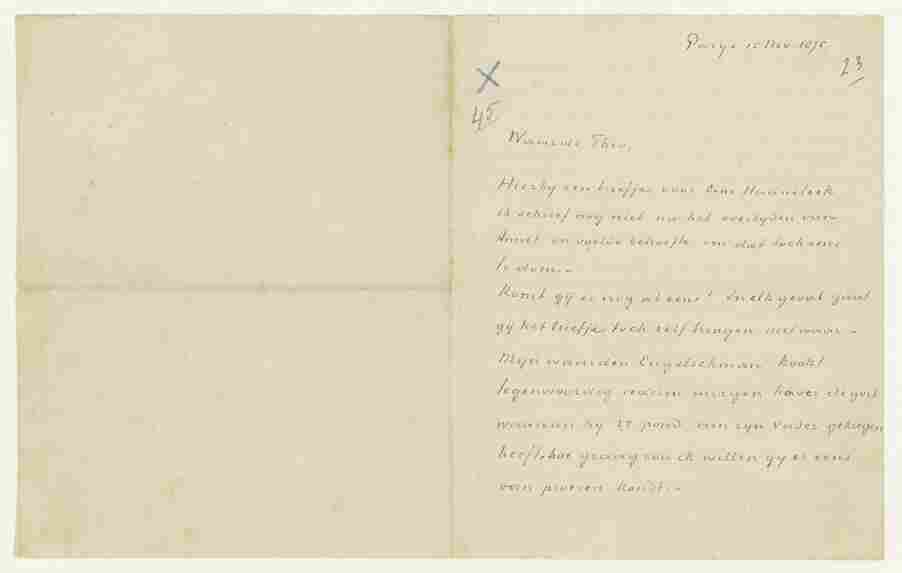 Parijs 15 Nov. 1875
23
X
45
Waarde Theo,
Hierby een briefje voor Oom Haanebeek
ik schreef nog niet na het overlyden van
Annet en voelde behoefte om dat toch eens
te doen.-
Komt gy er nog al eens? In elk geval zult
gy het briefje toch zelf brengen niet waar.-
Myn waarden Engelschman kookt
tegenwoordig iederen morgen havermout
waarvan hy 25 pond van zyn Vader gekregen
heeft, hoe graag zou ik willen gy er eens
van proeven kondt.-